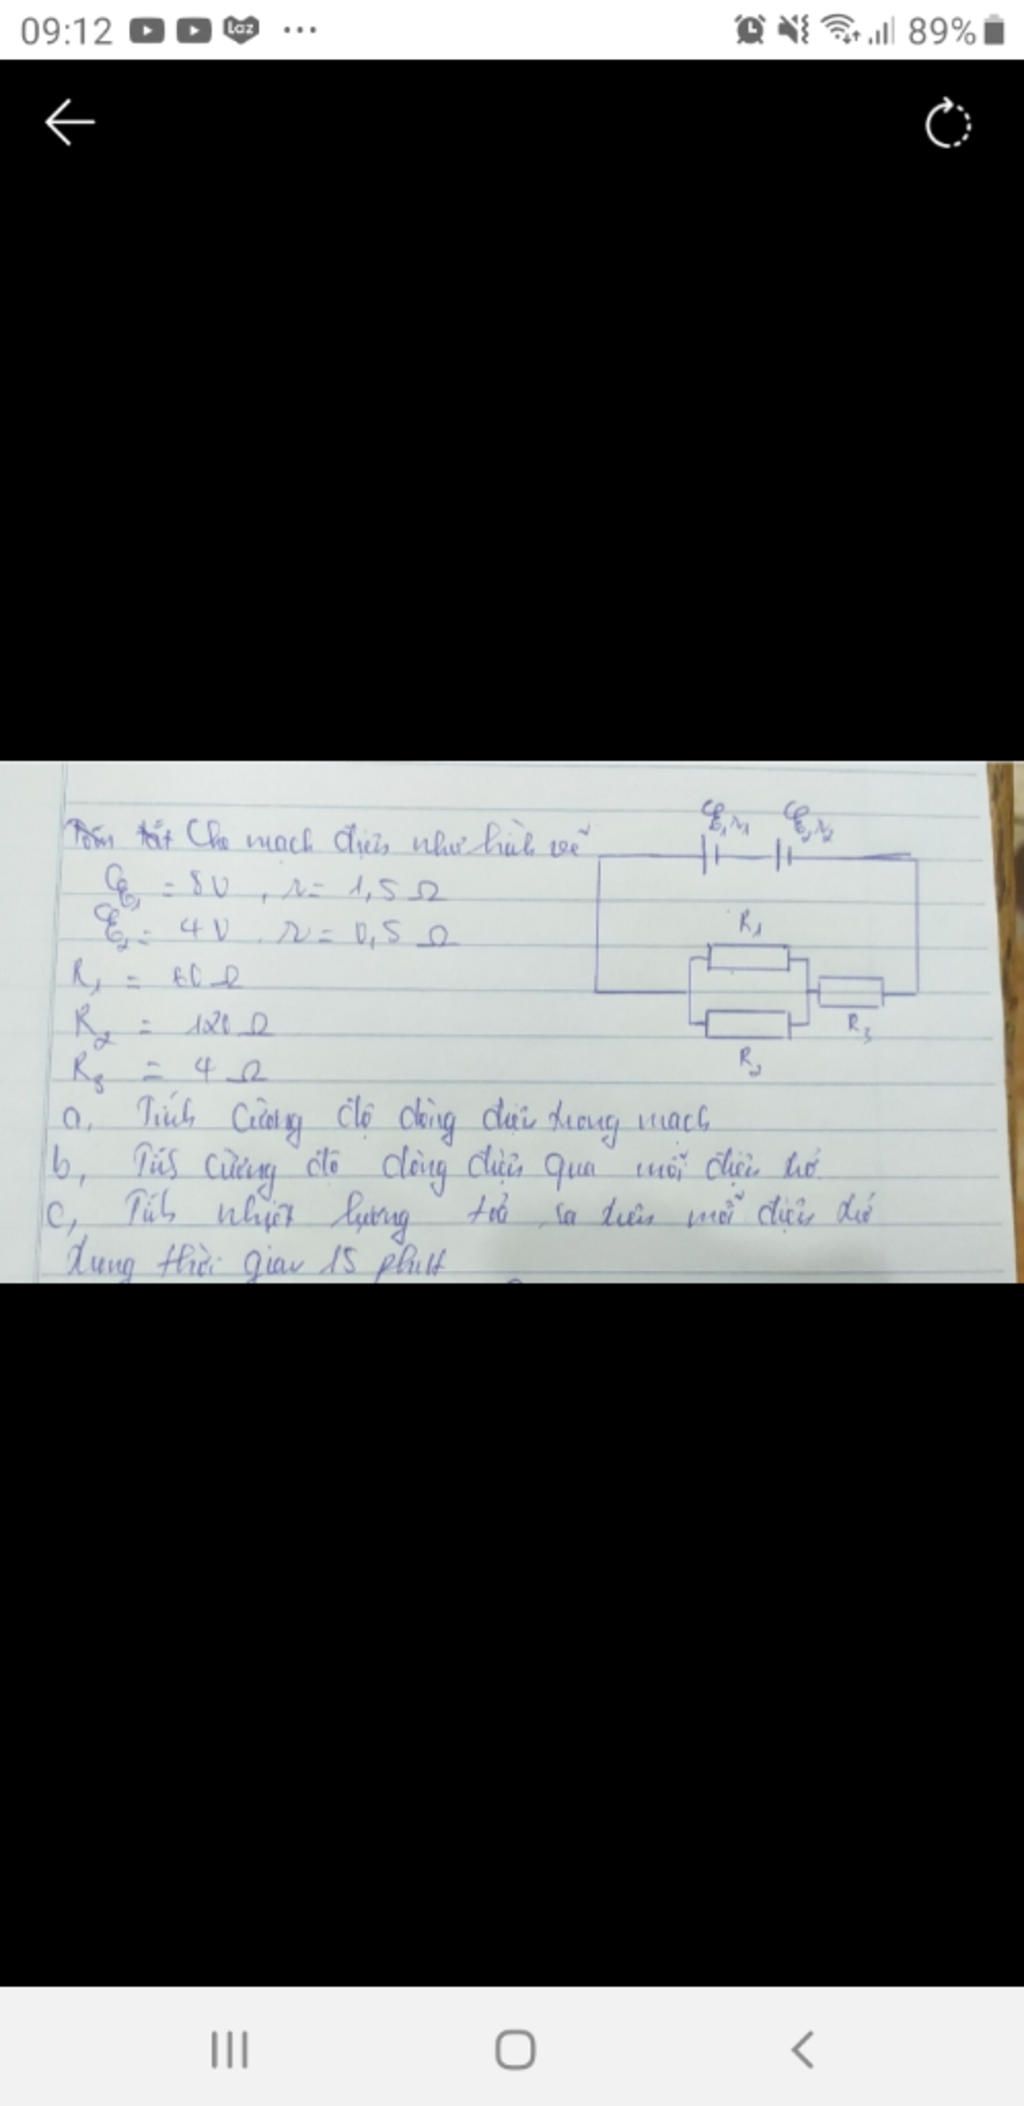 09:12 Laz ... 89%
Tóm tắt Cho mạch điện như hình vẽ
ℰ₁, r₁ ℰ₂, r₂
ℰ₁ = 8V, r = 1,5 Ω
ℰ₂ = 4V. r = 0,5 Ω
R₁
R₁ = 60 Ω
R₂ = 120 Ω
R₃
R₂
R₃ = 4 Ω
a, Tính Cường độ dòng điện trong mạch
b, Tính cường độ dòng điện qua mỗi điện trở.
c, Tính nhiệt lượng toả ra trên mỗi điện trở
trong thời gian 15 phút